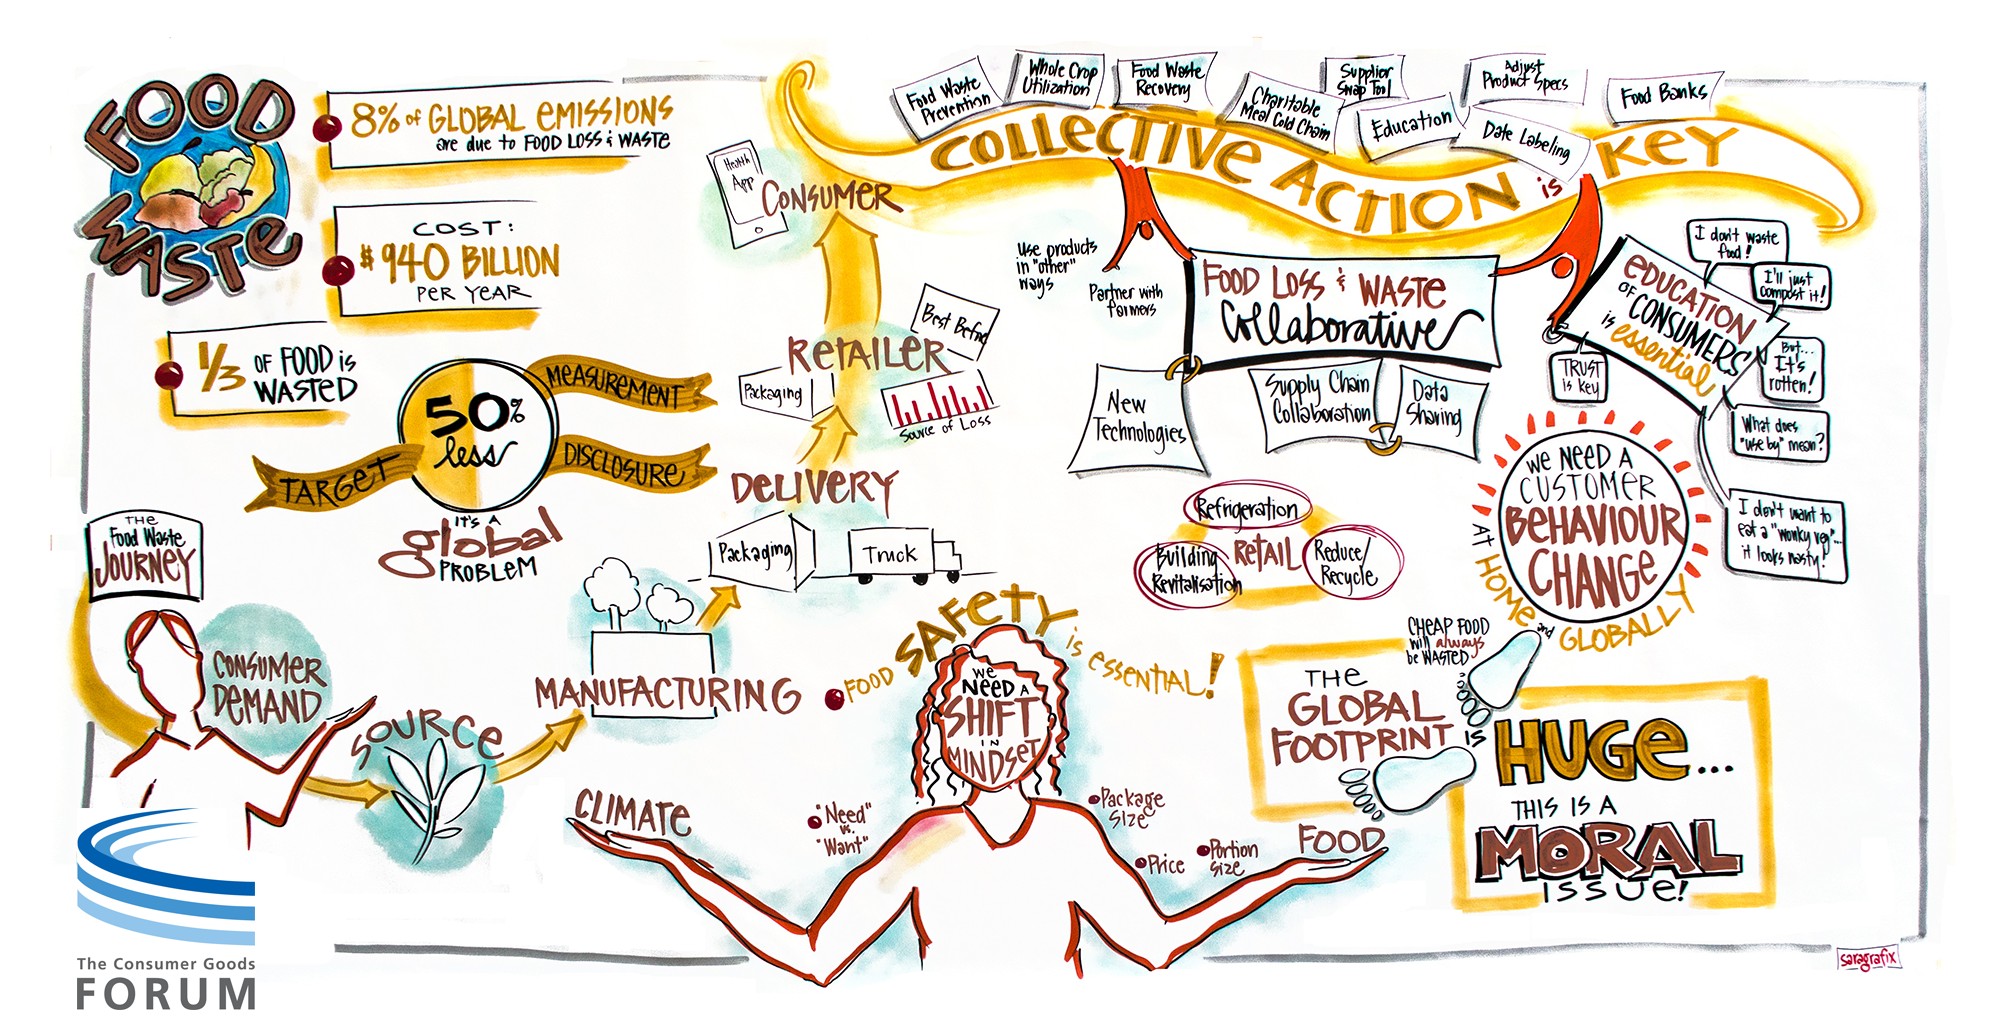 FOOD
WASTE
8% of GLOBAL EMISSIONS
are due to FOOD LOSS & WASTE
COST:
$940 BILLION
PER YEAR
1/3 OF FOOD is
WASTED
50%
less
MEASUREMENT
TARGET
DISCLOSURE
IT'S A
global
PROBLEM
THE
Food Waste
JOURNEY
CONSUMER
DEMAND
SOURCE
MANUFACTURING
Packaging
Truck
DELIVERY
Packaging
RETAILER
Best Before
Source of Loss
Health
App
CONSUMER
Food Waste
Prevention
Whole Crop
Utilization
Food Waste
Recovery
Charitable
Meal Cold Chain
Supplier
Swap Tool
Education
Adjust
Product Specs
Date Labeling
Food Banks
COLLECTIVE ACTION is KEY
Use products
in "other"
ways
Partner with
farmers
FOOD LOSS & WASTE
Collaborative
New
Technologies
Supply Chain
Collaboration
Data
Sharing
EDUCATION
OF
CONSUMERS
is
essential
I don't waste
food!
I'll just
compost it!
But...
It's
rotten!
What does
"use by" mean?
I don't want to
eat a "wonky veg"...
it looks nasty!
TRUST
is key
WE NEED A
CUSTOMER
BEHAVIOUR
CHANGE
AT HOME and GLOBALLY
Refrigeration
Building
Revitalisation
RETAIL
Reduce/
Recycle
FOOD SAFETY is ESSENTIAL!
WE
NEED A
SHIFT
IN
MINDSET
CLIMATE
"Need"
vs.
"Want"
Package
Size
Price
Portion
Size
FOOD
CHEAP FOOD
will always
be WASTED
THE
GLOBAL
FOOTPRINT IS
HUGE...
THIS IS A
MORAL
ISSUE!
The Consumer Goods
FORUM
saragrafix